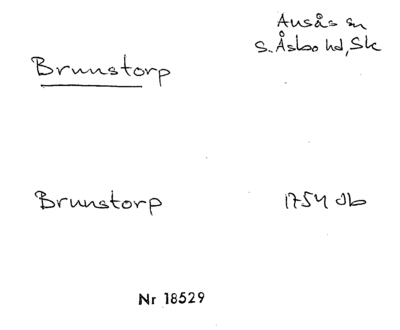 Ausås sn
S. Åsbo hd, Sk
Brunstorp
Brunstorp 1754 Jb
Nr 18529